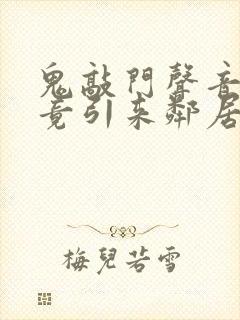 鬼敲門聲音
竟引來鄰居
梅兒若雪